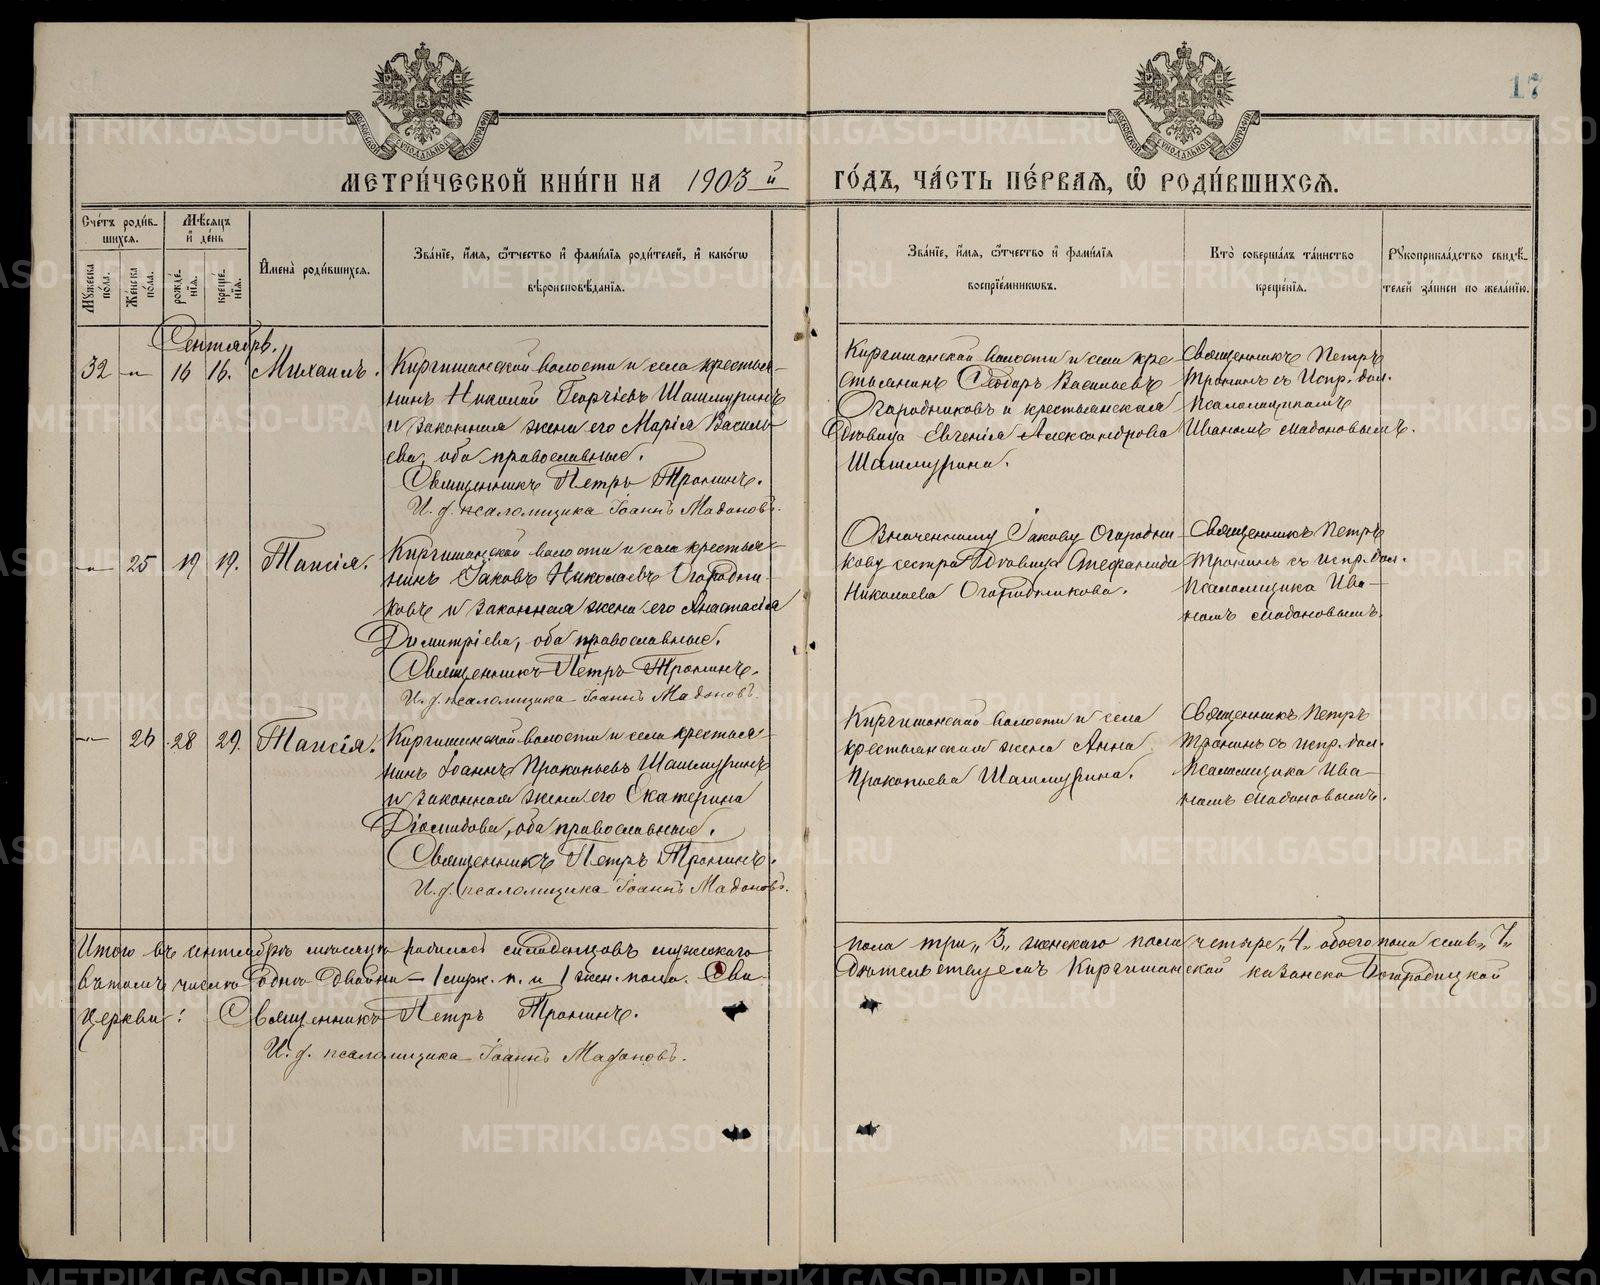 17
МЕТРИ́ЧЕСКОЙ КНИ́ГИ НА 1903 й ГО́ДЪ, ЧА́СТЬ ПЕ́РВАЯ, Ѡ҆ РОДИ́ВШИХСЯ.
Сче́тъ роди́в-
шихся.
Мꙋжеска по́ла.
Же́нска по́ла.
Мѣ́сяцъ и҆ де́нь
рожде́-нїя.
креще́-нїя.
И҆мена̀ роди́вшихся.
Зва́нїе, и҆́мя, ѻ҆́тчество и҆ фами́лїя роди́телей, и҆ како́гѡ
вѣроисповѣ́данїя.
Зва́нїе, и҆́мя, ѻ҆́тчество и҆ фами́лїя
воспрїе́мникѡвъ.
Кто̀ соверша́лъ та́инство
креще́нїя.
Рꙋкоприкла́дство свидѣ́-
телей за́писи по жела́нїю.
Сентябрь.
32 —„— 16 16. Михаилъ.
Киргишанской волости и села крестья-
нинъ Николай Георгіевъ Шашмуринъ
и законная жена его Марія Василь-
ева, оба православные.
Священникъ Петръ Тронинъ.
И. д. псаломщика Іоаннъ Мадоновъ.
Киргишанской волости и села кре-
стьянинъ Ѳеодоръ Васильевъ
Огородниковъ и крестьянская
вдовица Евгенія Александрова
Шашмурина.
Священникъ Петръ
Тронинъ съ испр. дол.
псаломщикомъ
Иваномъ Мадоновымъ.
—„— 25 19 19. Таисія.
Киргишанской волости и села крестья-
нинъ Іаковъ Николаевъ Огородни-
ковъ и законная жена его Анастасія
Димитріева, оба православные.
Священникъ Петръ Тронинъ.
И. д. псаломщика Іоаннъ Мадоновъ.
Означенному Іакову Огородни-
кову сестра вдовица Стефанида
Николаева Огородникова.
Священникъ Петръ
Тронинъ съ испр. дол.
псаломщика Ива-
номъ Мадоновымъ.
—„— 26 28 29. Таисія.
Киргишанской волости и села крестья-
нинъ Іоаннъ Прокопьевъ Шашмуринъ
и законная жена его Екатерина
Діомидова, оба православные.
Священникъ Петръ Тронинъ.
И. д. псаломщика Іоаннъ Мадоновъ.
Киргишанской волости и села
крестьянская жена Анна
Прокопьева Шашмурина.
Священникъ Петръ
Тронинъ съ испр. дол.
псаломщика Ива-
номъ Мадоновымъ.
Итого въ сентябрѣ мѣсяцѣ родилось младенцовъ мужескаго пола три „3„ женскаго пола четыре „4„ обоего пола семь „7„
въ томъ числѣ одна двойни — 1 муж. п. и 1 жен. пола. Сви- дѣтельствуемъ Киргишанской Казанско Богородицкой
церкви: Священникъ Петръ Тронинъ.
И. д. псаломщика Іоаннъ Мадоновъ.